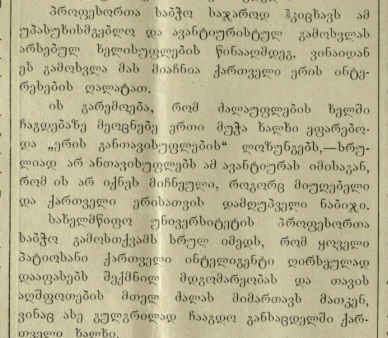 პროფესორთა საბჭო საჯაროდ ჰკიცხავს ამ
უპასუხისმგებლო და ავანტიურისტულ გამოსვლას
არსებულ ხელისუფლების წინააღმდეგ, ვინაიდან
ეს გამოსვლა მას მიაჩნია ქართველი ერის ინტე-
რესების ღალატათ.
ის გარემოება, რომ ძალაუფლების ხელში
ჩაგდებაზე მეოცნებე ერთი მუჭა ხალხი ეფარებო-
და „ერის განთავისუფლების“ ლოზუნგებს,—სრუ-
ლიად არ ანთავისუფლებს ამ ავანტიურას იმისაგან,
რომ ის არ იქნეს მიჩნეული, როგორც მიუღებელი
და ქართველი ერისათვის დამღუპველი ნაბიჯი.
სახელმწიფო უნივერსიტეტის პროფესორთა
საბჭო გამოსთქვამს სრულ იმედს, რომ ყოველი
პატიოსანი ქართველი ინტელიგენტი ღირსეულად
დააფასებს შექმნილ მდგომარეობას და თავის
აღშფოთების მთელ ძალას მიმართავს მათკენ,
ვინაც ასე გულგრილად ჩააგდო განსაცდელში ქარ-
თველი ხალხი.